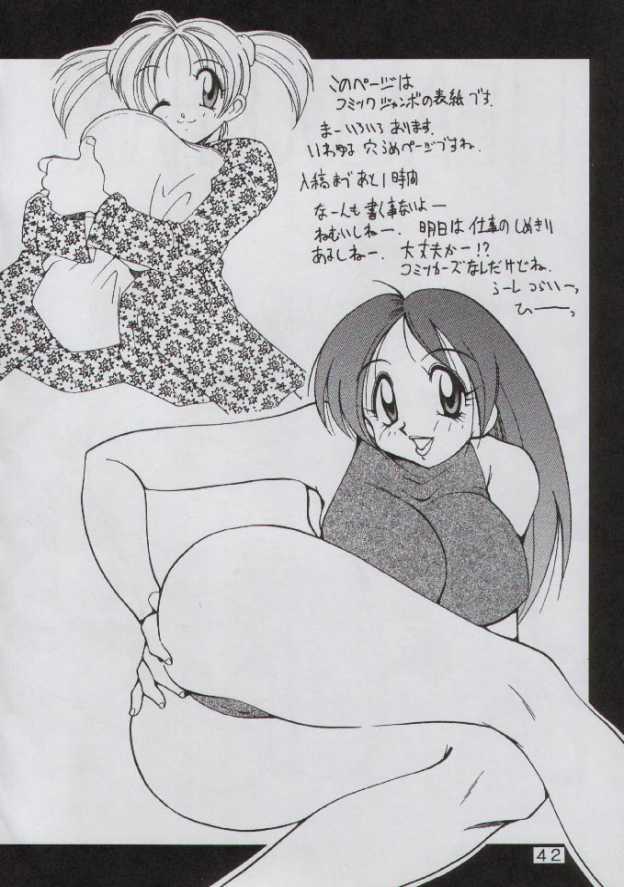 このページは
コミックジャンボの表紙です.
まーいろいろあります.
いわゆる穴うめページですね.
入稿まであと1時間
なーんも書く事ないよー
ねむいしねー. 明日は仕事のしめきり
あるしねー. 大丈夫かー!?
コミッカーズなしだけどね.
うーし つらいーっ
ひーーっ
42